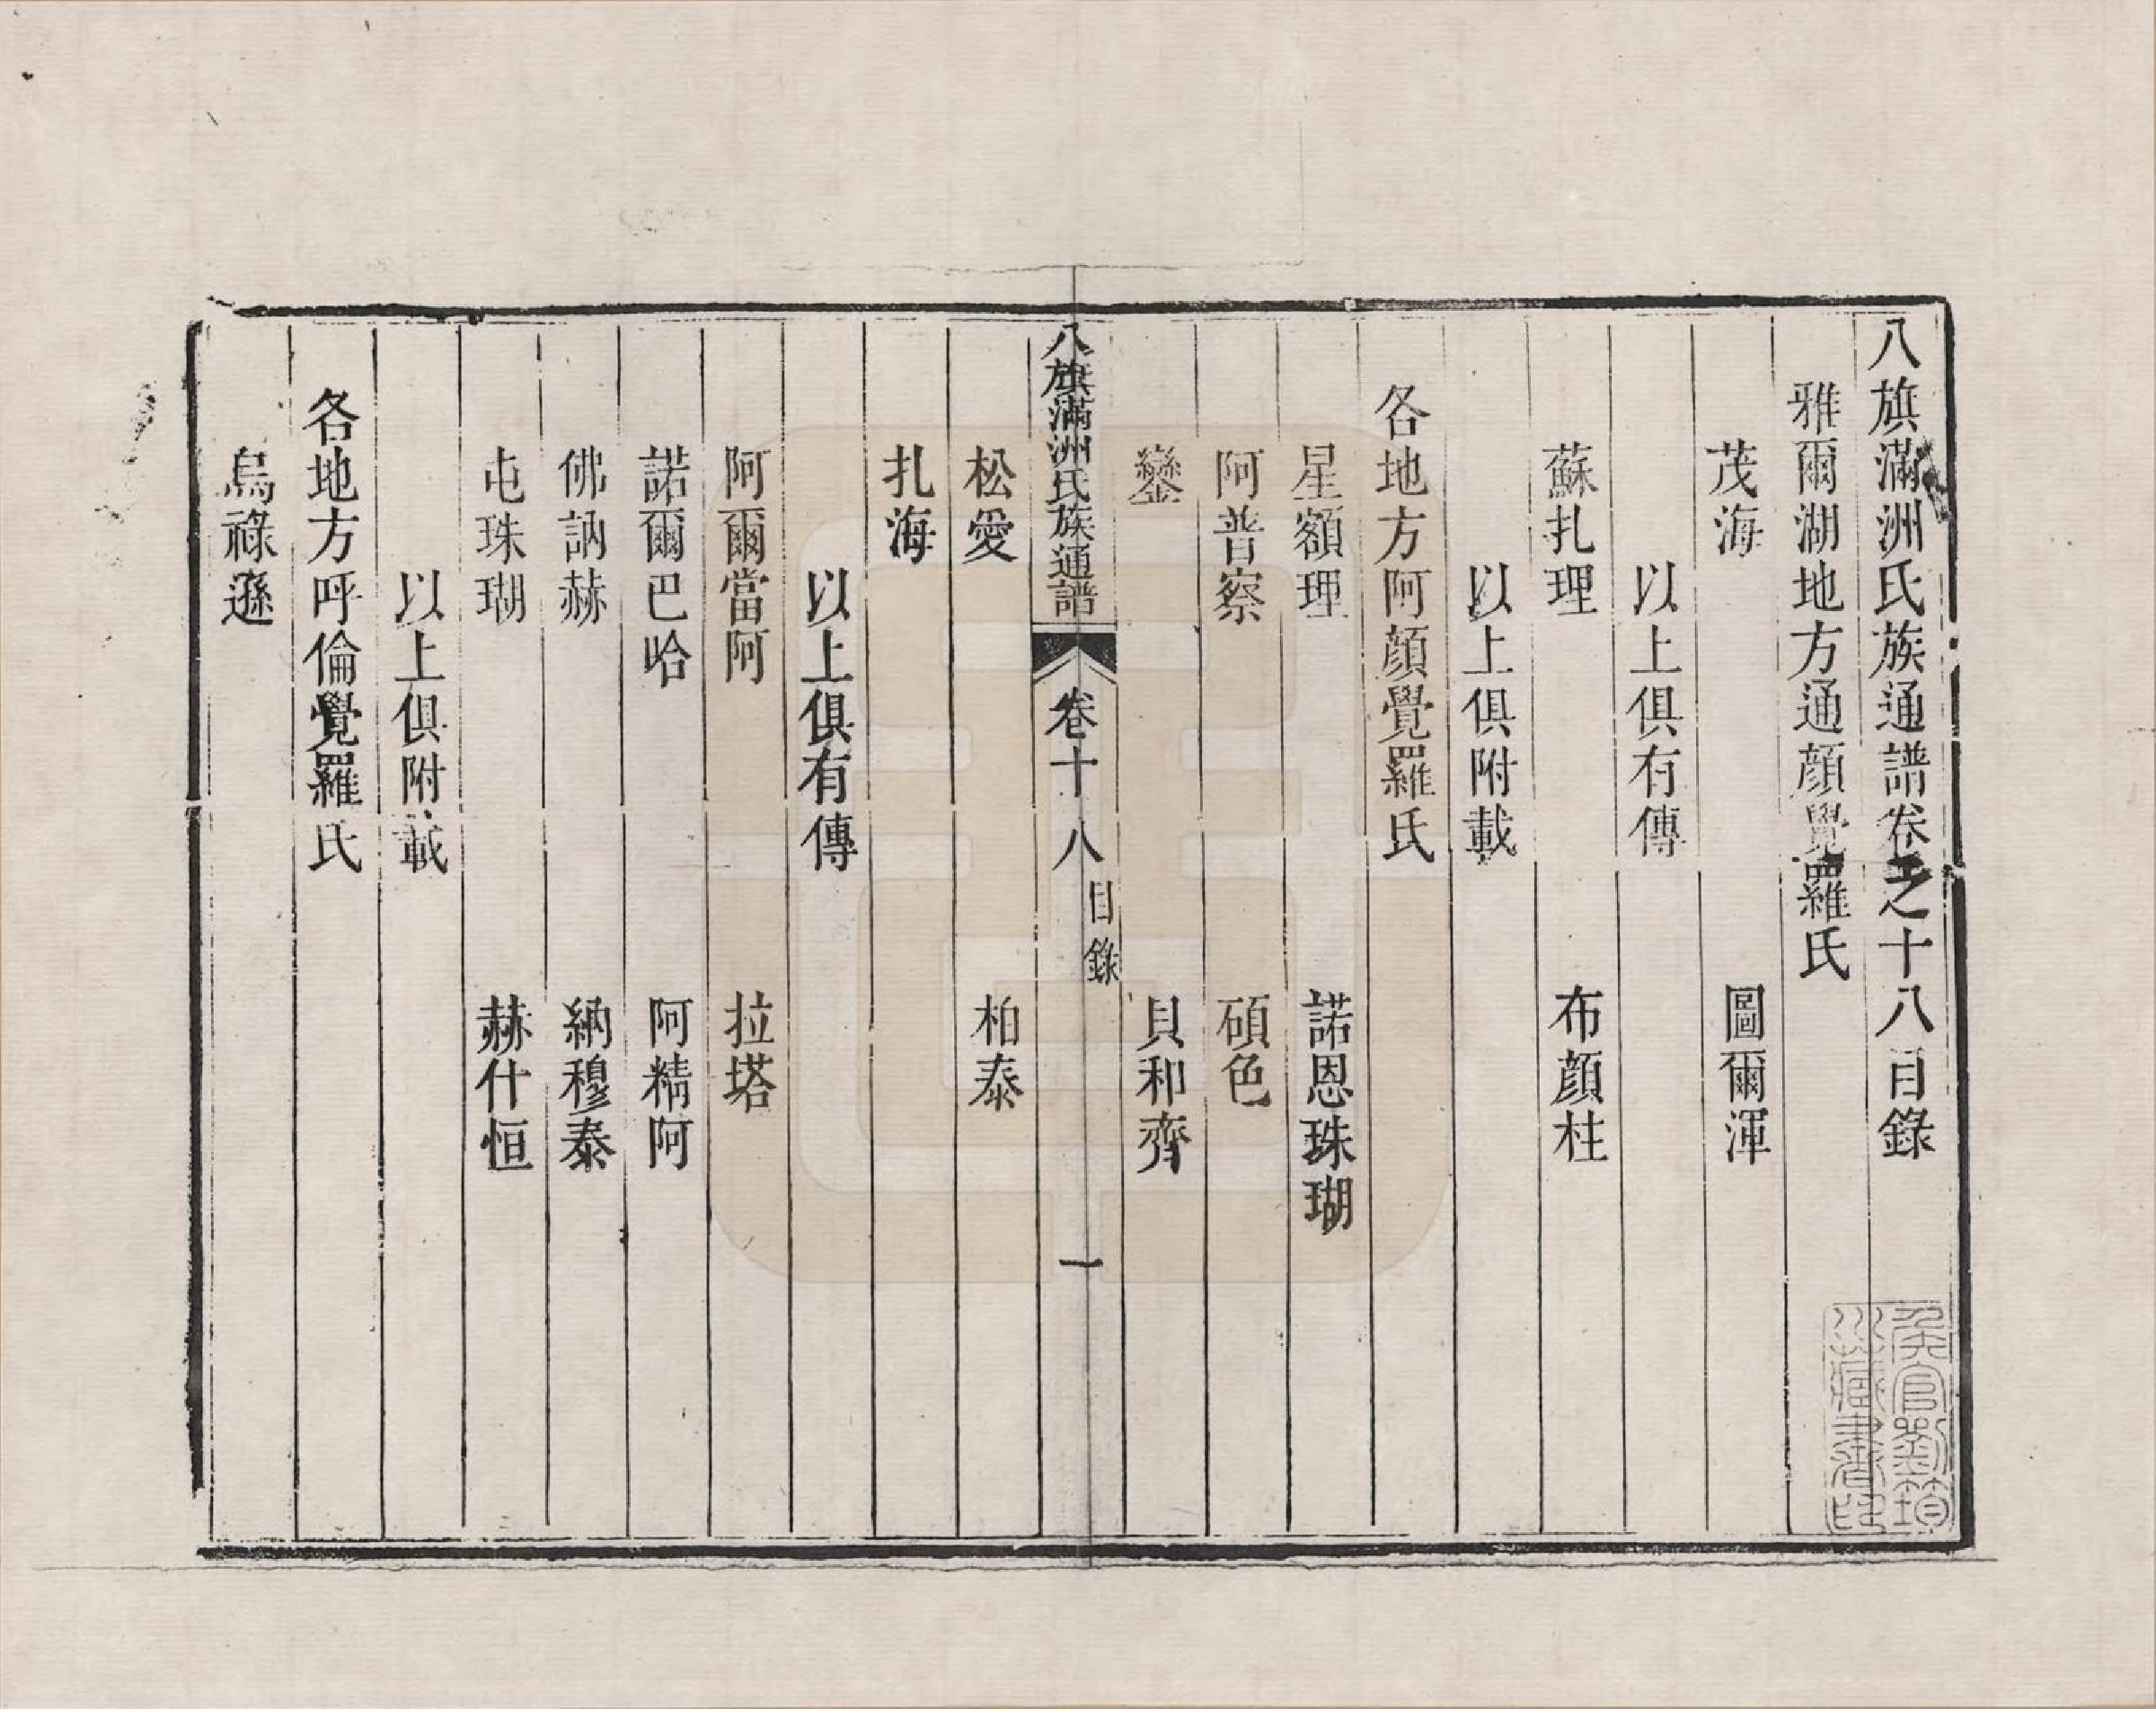 八旗滿洲氏族通譜卷之十八目錄
雅爾湖地方通顏覺羅氏
茂海　圖爾渾
以上俱有傳
蘇扎理　布顏柱
以上俱附載
各地方阿顏覺羅氏
星額理　諾恩珠瑚
阿普察　碩色
鑾　貝和齊
八旗滿洲氏族通譜　卷十八　目錄　一
松愛　柏泰
扎海
以上俱有傳
阿爾當阿　拉塔
諾爾巴哈　阿精阿
佛訥赫　納穆泰
屯珠瑚　赫什恒
以上俱附載
各地方呼倫覺羅氏
烏祿遜
侯官劉筠
川藏書印